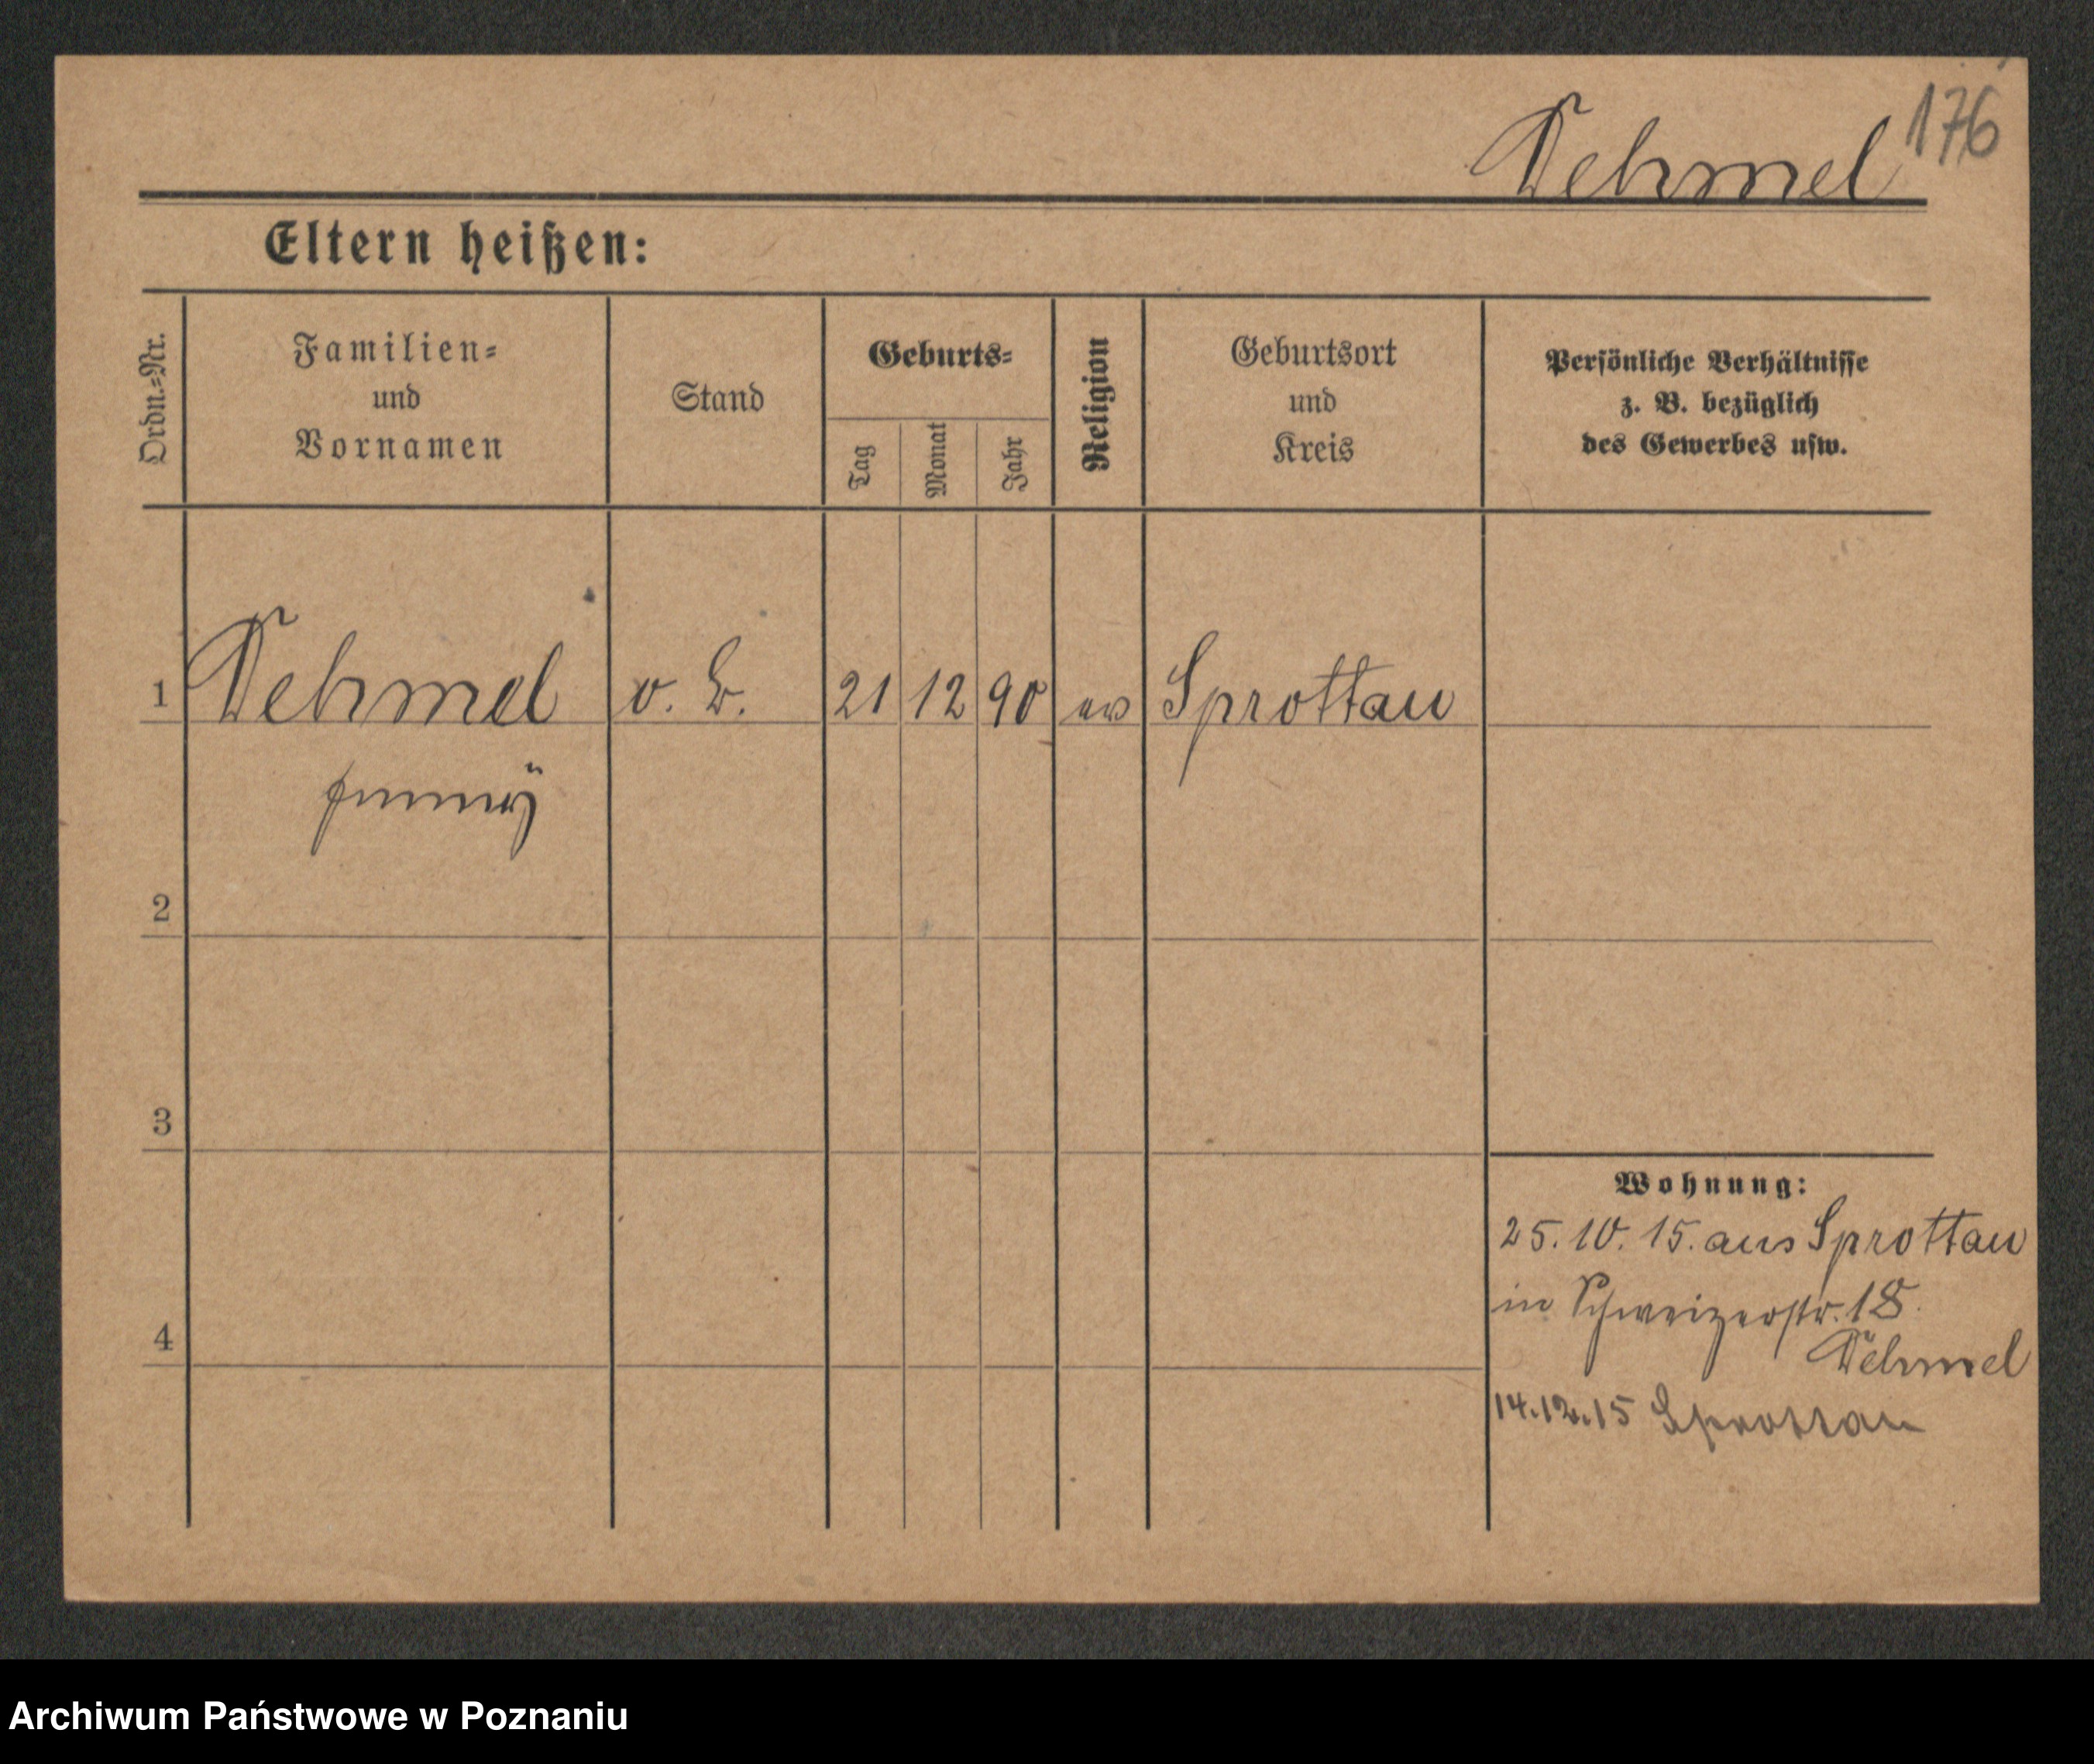 176
Dehmel
Eltern heißen:
Ordn.-Nr.
Familien- und Vornamen
Stand
Geburts-
Tag
Monat
Jahr
Religion
Geburtsort und Kreis
Persönliche Verhältnisse z. B. bezüglich des Gewerbes usw.
1 Dehmel v. 21 12 90 ev Sprottau
2
3
4
Wohnung:
25. 10. 15. aus Sprottau
in Schweizerstr. 18.
Dehmel
14.12.15 Sprottau
Archiwum Państwowe w Poznaniu